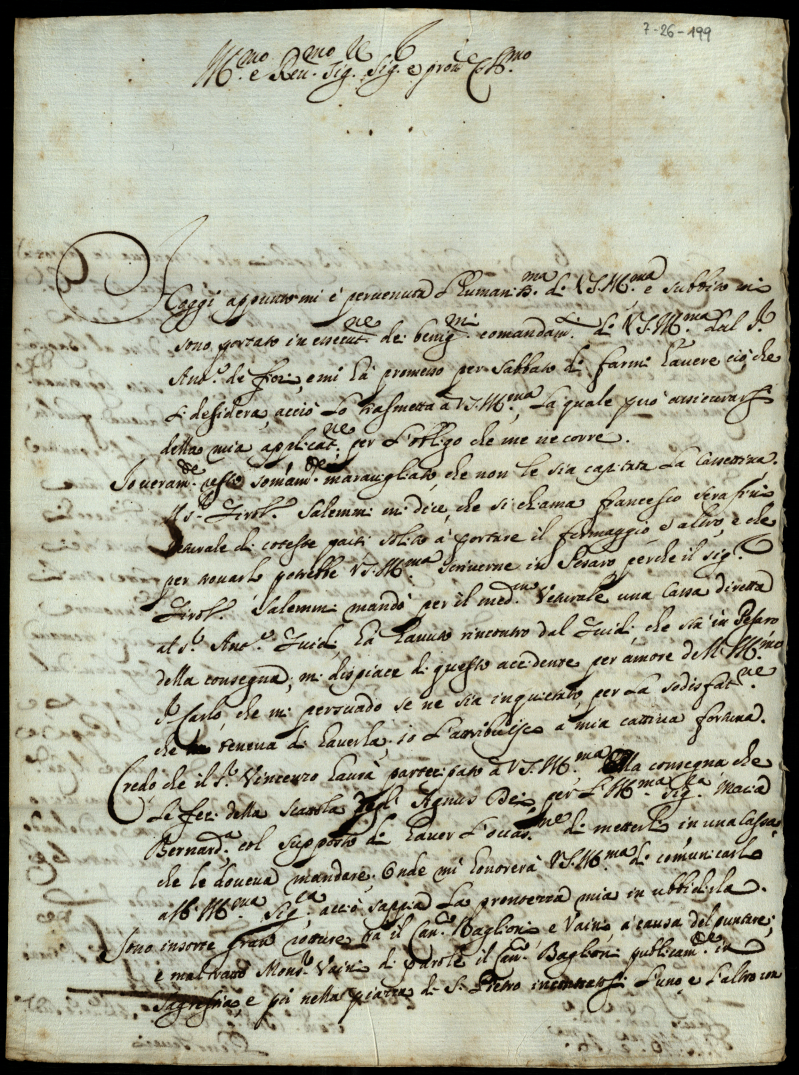 7-26-199
Ill.mo e Rev.mo Sig. Sig. e pron. Col.mo
Hoggi appunto mi è pervenuta l'humaniss.ma di V.S. Ill.ma e subbito mi
sono portato in essecut.ne de benig.mi comandam.ti di V.S. Ill.ma dal S.r
Ant.o de fiori, e mi hà promesso per Sabbato di farmi havere ciò che
si desidera, acciò lo trasmetta a V.S. Ill.ma, la quale può assicurarsi
della mia applicat.ne per l'obligo che me ne corre.
Io veram.te resto somam.te maravigliato, che non le sia capitata la Cassettina.
Il S.r Girol.o Salemmi mi dice, che si chiama francesco Serafini
Veturale di coteste parti solito à portare il formaggio et altro, e che
per trovarlo potrebbe V.S. Ill.ma scriverne in Pesaro perche il Sig.r
Girol.o Salemmi mandò per il med.mo Veturale una Cassa diretta
al S.r Ant.o Guidi, hà havuto rincontro dal Guidi, che sia in Pesaro
della consegna; mi dispiace di questo accidente per amore dell' Ill.mo
S.r Carlo, che mi persuado se ne sia inquietato, per la sodisfat.ne
che teneva di haverla; io l'attribuisco à mia cattiva fortuna.
Credo che il S.r Vincenzo haurà partecipato à V.S. Ill.ma della consegna che
le feci della scatola degl' Agnus Dei per l'Ill.ma Sig.ra Maria
Bernard.a col supposto di haver l'occas.ne di metterli in una Cassa
che le doveva mandare. Onde mi honorerà V.S. Ill.ma di comunicarlo
all' Ill.ma Sig.ra acciò sappia la prontezza mia in ubbidirla.
Sono insorte gran rotture trà il Can.co Baglioni e Vaini à causa del puntare;
e maltrattò Mons.r Vaini di parole il Can.co Baglioni publicam.te in
Sagrestia, e poi nella piazza di S. Pietro incontratosi l'uno e l'altro con